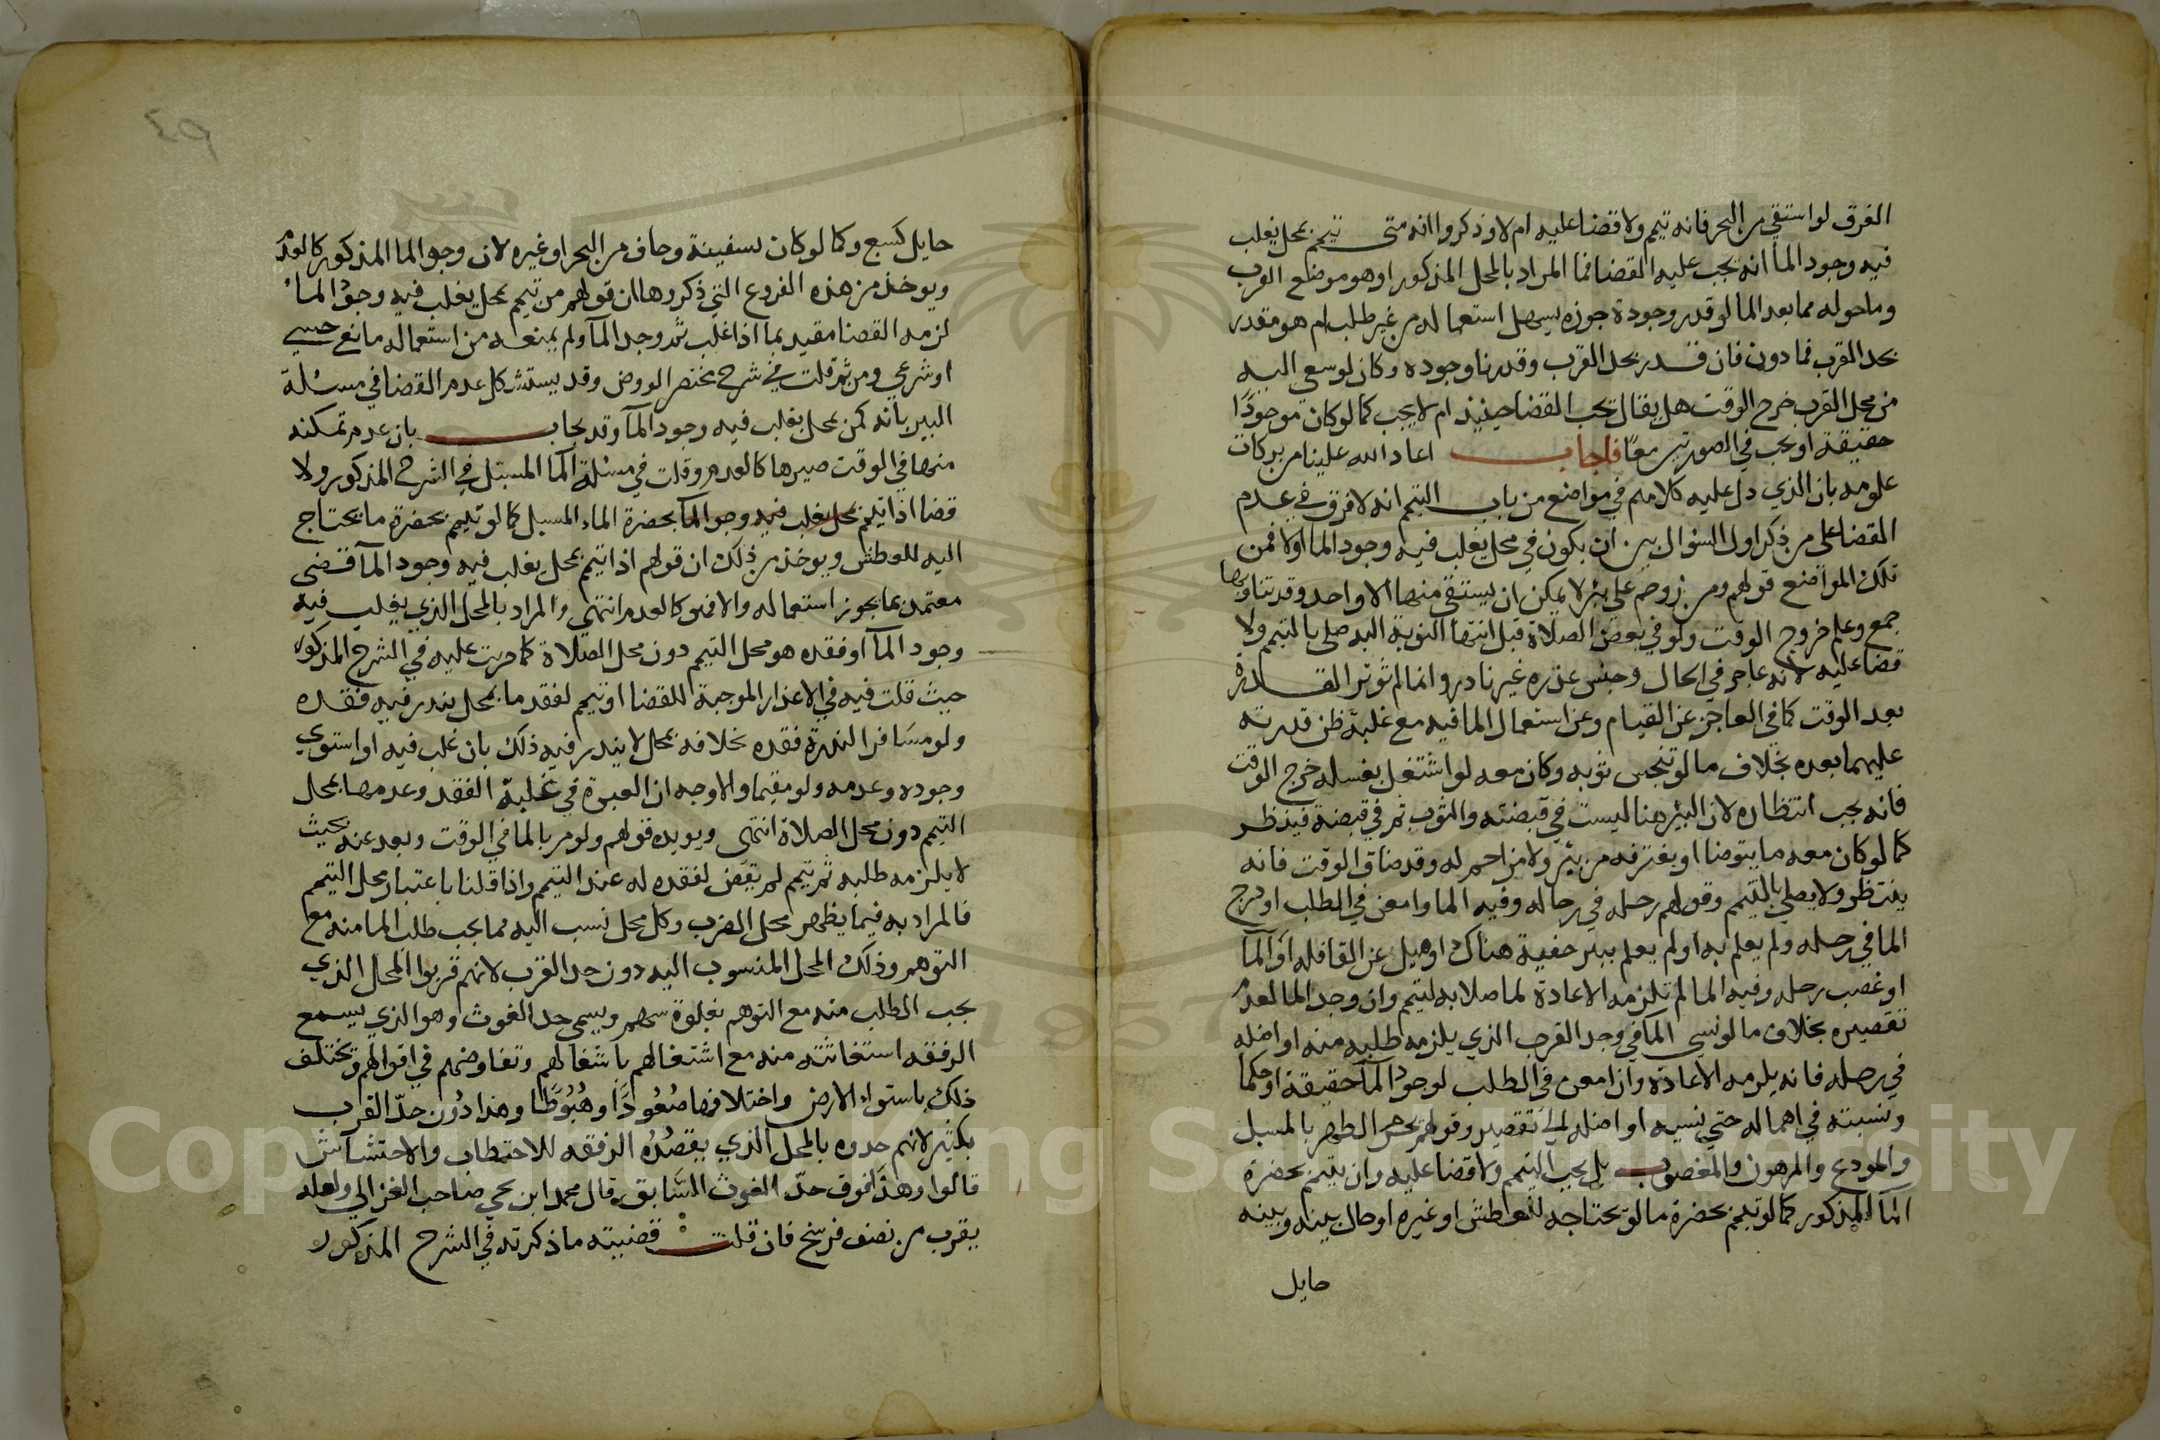 الغرق لو استقي من البحر فانه تيمم ولا قضا عليه ام لا وذكروا انه متى تيمم بمحل يغلب
فيه وجود الما انه يجب عليه القضا فما المراد بالمحل المذكور اهو موضع القرب
وما حوله مما بعد الما لو قدر وجوده جوزه يسهل استعماله من غير طلب ام هو مقدر
بحد القرب فما دون فان قدر بحد القرب وقدرنا وجوده وكان لو سعي اليه
من محل القرب خرج الوقت هل يقال يجب القضا حينيذ ام لا يجب كما لو كان موجودًا
حقيقة او يجب في الصورتين معًا فاجاب اعاد الله علينا من بركات
علومه بان الذي دل عليه كلامهم في مواضع من باب التيمم انه لا فرق في عدم
القضا على من ذكر اول السؤال بين ان يكون في محل يغلب فيه وجود الما اولا فمن
تلك المواضع قولهم ومن زوحم على بئر لا يمكن ان يستقي منها الا واحد وقد تناوبها
جمع وعلم خروج الوقت ولو في بعض الصلاة قبل انتها النوبة اليه صلى بالتيمم ولا
قضا عليه لانه عاجز في الحال وجنس عذره غير نادر وانما لم تؤثر القدرة
بعد الوقت كما في العاجز عن القيام وعن استعمال الما فيه مع غلبة ظن قدرته
عليهما بعده بخلاف ما لو تنجس ثوبه وكان معه لو اشتغل بغسله خرج الوقت
فانه يجب انتظاره لان البئر هنا ليست في قبضته والثوب ثم في قبضة فينظر
كما لو كان معه ما يتوضا او يغترفه من بئر ولا مزاحم له وقد ضاق الوقت فانه
ينتظر ولا يصلي بالتيمم وقولهم رحله في رحاله وفيه الما وامعن في الطلب او درج
الما في رحله ولم يعلم به او لم يعلم ببير خفية هناك او هيل عن القافله او الما
او غصب رحله وفيه الما لم تلزمه الاعادة لما صلا به ليتمم وان وجد الما لعدم
تقصيره بخلاف ما لو نسي الما في وجد القرب الذي يلزمه طلبه منه او اضله
في رحله فانه يلزمه الاعادة وان امعن في الطلب لوجود المآ حقيقة او حكما
ونسبته في اهماله حتي نسيه او اضله الي تقصير وقولهم يحرم الطهر بالمسبل
والمودع والمرهون والمغصوب بل يجب التيمم ولا قضا عليه وان يتمم بحضرة
الما المذكور كما لو تيمم بحضرة ما لو يحتاجه للعطش او غيره او حال بينه وبينه
حايل
حايل كسبع وكما لو كان بسفينة وخاف من البحر او غيره لان وجود الما المذكور كالعدم
ويوخذ من هذه الفروع التي ذكروها ان قولهم من تيمم بمحل يغلب فيه وجود الما
لزمه القضا مقيد بما اذا غلب ثم وجد المآ ولم يمنعه من استعماله مانع حسي
او شرعي ومن ثم قلت في شرح مختصر الروض وقد يستشكل عدم القضا في مسئلة
البير بانه كمن بمحل يغلب فيه وجود المآ وقد يجاب بان عدم تمكنه
منها في الوقت صيرها كالعدم وقلت في مسئلة المآ المسبل في الشرح المذكور ولا
قضا اذا تيمم بمحل يغلب فيه وجود المآ بحضرة الماء المسبل كما لو تيمم بحضرة ما يحتاج
اليه للعطش ويوخذ من ذلك ان قولهم اذا تيمم بمحل يغلب فيه وجود المآ قضى
معتمد بما يجوز استعماله والا فهو كالعدم انتهي والمراد بالمحل الذي يغلب فيه
وجود المآ او فقده هو محل التيمم دون محل الصلاة كما جريت عليه في الشرح المذكور
حيث قلت فيه في الاعذار الموجبة للقضا او تيمم لفقد ما بمحل يندر فيه فقده
ولو مسافرا لندرة فقده بخلافه بمحل لا يندر فيه ذلك بان غلب فيه او استوي
وجوده وعدمه ولو مقيما والاوجه ان العبرة في غلبة الفقد وعدمها بمحل
التيمم دون محل الصلاة انتهى ويويده قولهم ولو مر بالما في الوقت وبعد عنه بحيث
لا يلزمه طلبه ثم تيمم لم يقض لفقده له عند التيمم واذا قلنا باعتبار محل التيمم
فالمراد به فيما يظهر محل القرب وكل محل نسب اليه مما يجب طلب الما منه مع
التوهم وذلك المحل المنسوب اليه دون حد القرب لانهم قربوا المحل الذي
يجب الطلب منه مع التوهم بغلوة سهم ويسمى حد الغوث وهو الذي يسمع
الرفقه استغاثته منه مع اشتغالهم باشغالهم وتفاوضهم في اقوالهم وتختلف
ذلك باستواء الارض واختلافها صُعُودًا وهُبُوطًا وهذا دُون حدّ القرب
بكثير لانهم حدوه بالمحل الذي يقصُدُه الرفقه للاحتطاب والاحتشاش
قالوا وهذا فوق حدّ الغوث السَّابق قال محمد ابن يحي صاحب الغزالي ولعله
يقرب من نصف فرسخ فان قلت قضيته ما ذكرته في الشرح المذكور